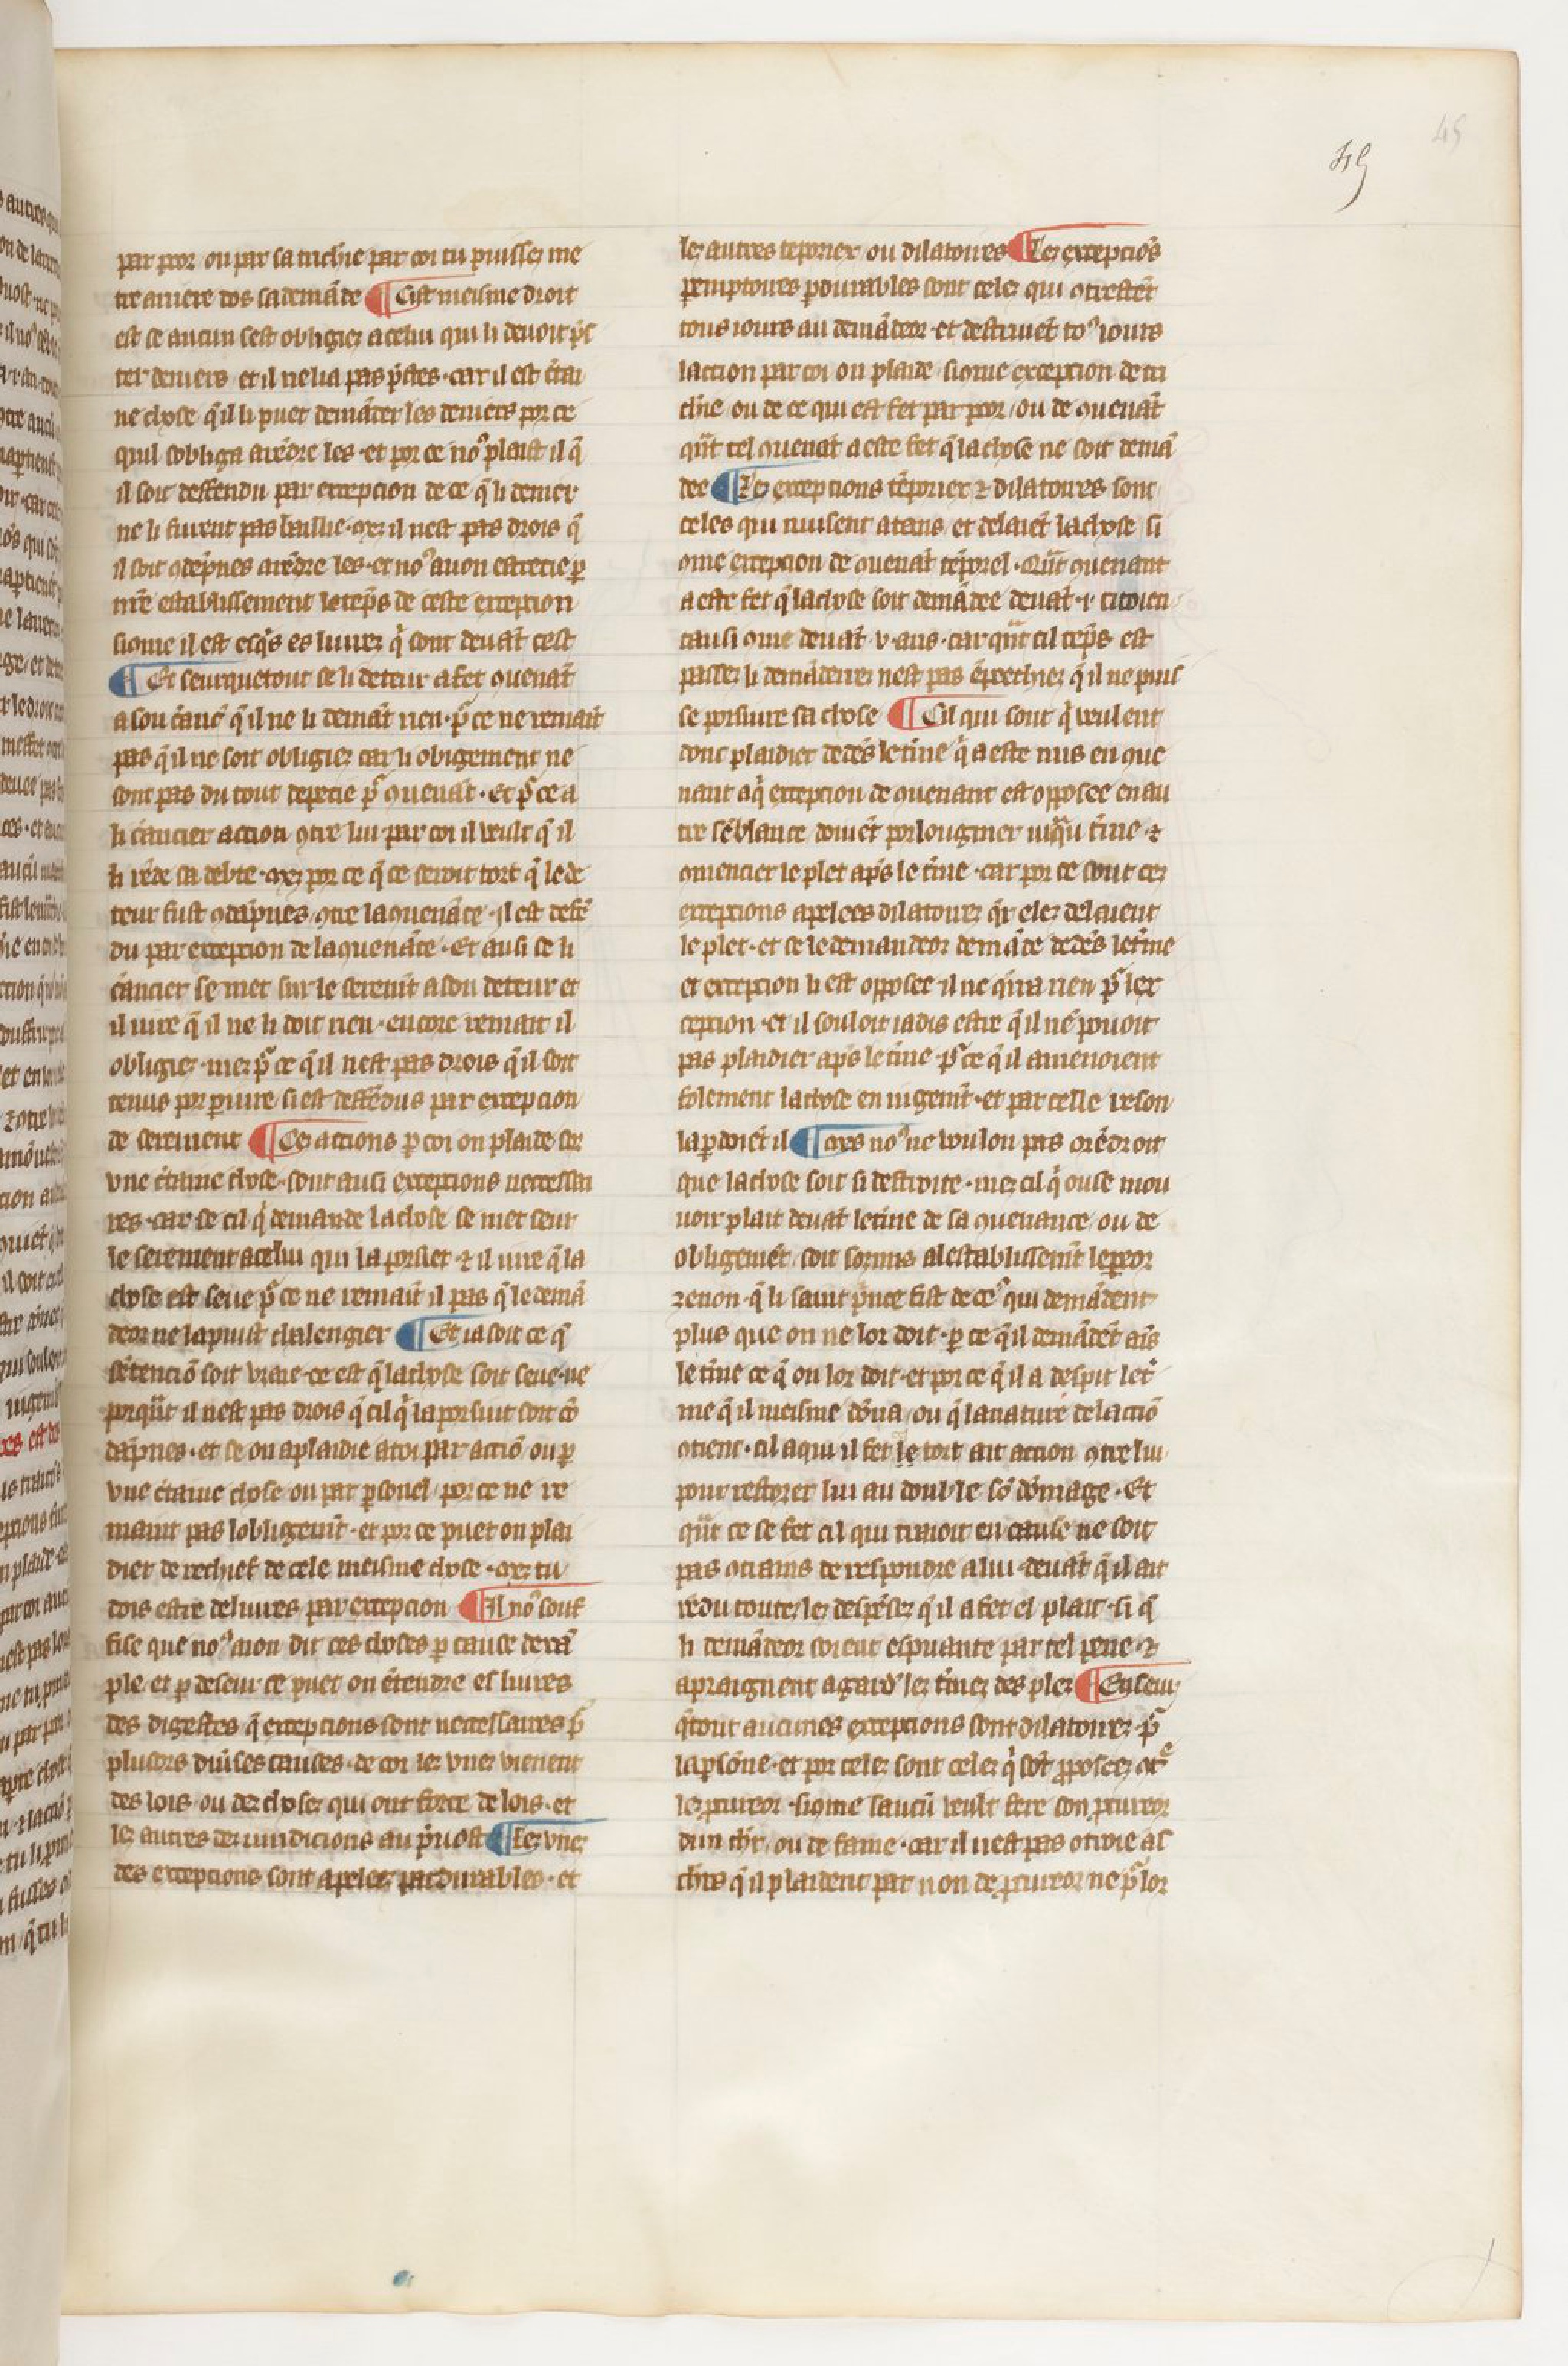 45
45
par poor ou par sa trichie par coi tu puisses me
tre arriere dos sa demāde ¶ Cist meisme droit
est se aucun sest obligiez a celui qui li deuoit p̄s
ter deniers et il ne lia pas p̄stes · car il est c̄tai
ne chose q̄ il li puet demāder les deniers por ce
quil sobliga a rēdre les · et por ce noꝰ plaist il q̄
il soit deffendu par excepcion de ce q̄ li denier
ne li furent pas baillie · mez il nest pas drois q̄
il soit ꝯdēpnes a rēdre les · et noꝰ auon estrecie ꝑ
nr̄e establissement le tēps de ceste excepcion
siqme il est es liures q̄ sont deuāt cest
¶ Et seurquetout se li deteur a fet ꝯuenāt
a son c̄anc̄ q̄ il ne li demāt rien · p̄ ce ne remaīt
pas q̄ il ne soit obligiez car li obligement ne
sont pas du tout depecie p̄ ꝯuenāt · Et p̄ ce a
li c̄ancier action ꝯtre lui par coi il veult q̄ il
li rēde sa debte · mez por ce q̄ ce seroit tort q̄ le de
teur fust ꝯdāpnes ꝯtre la ꝯuenāce · il est defē
du par excepcion de la ꝯuenāce · Et ausi se li
c̄ancier se met sur le seremīt a son deteur et
il iure q̄ il ne li doit rien · encore remaīt il
obligiez · mez p̄ ce q̄ il nest pas drois q̄ il soit
tenus por ꝑiure si est deffēdus par excepcion
de serement ¶ Ces actions ꝑ coi on plaide sor
vne c̄taine chose · sont ausi excepcions necessai
res · car se cil q̄ demande la chose se met seur
le serement a celui qui la porsiet ⁊ il iure q̄ la
chose est seue p̄ ce ne remaīt il pas q̄ le demā
deor ne la puist chalengier ¶ Et ia soit ce q̄
sētenciō soit vraie · ce est q̄ la chose soit seue · ne
porq̄nt il nest pas drois q̄ cil q̄ la porsuit soit cō
dāpnes · et se on a plaidie a toi par actiō ou ꝑ
vne c̄taine chose ou par ꝑsonel · por ce ne re
maint pas lobligemīt · et por ce puet on plai
dier de rechief de cele meisme chose · mez tu
dois estre deliures par excepcion ¶ Il noꝰ souf
fise que noꝰ auon dit ces choses ꝑ cause dexā
ple · et ꝑ deseur ce puet on ētendre es liures
des digestes q̄ excepcions sont necessaires p̄
plusors diu̾ses causes · de coi les vnes vienent
des lois · ou des choses qui ont force de lois · et
les autres des iuridicions au p̄uost ¶ Les vnes
des excepcions sont apelees pardurables · et
les autres tēporiex ou dilatoires ¶ Les excepciōs
pemptoires pdurables sont celes qui ꝯtrestēt
tous iours au demādeor · et destruiēt toꝰ iours
laction par coi on plaide · siqme excepcion de tri
chie · ou de ce qui est fet par poor · ou de ꝯuenāt
q̄nt tel ꝯuenāt a este fet q̄ la chose ne soit demā
dee ¶ Les excepcions tēporiex ⁊ dilatoires sont
celes qui nuisent a tans · et delaiēt la chose si
ꝯme excepcion de ꝯuenāt tēporel · Q̄nt ꝯuenant
a este fet q̄ la chose soit demādee deuāt · i · citoien
causi ꝯme deuāt · v · ans · car q̄nt cil tēps est
passez li demāderrez nest pas ēpeechiez q̄ il ne puis
se porsiure sa chose ¶ Cil qui sont q̄ veulent
donc plaidier dedēs le t̄me q̄ a este mis en ꝯue
nant a q̄ excepcion de ꝯuenant est opposee en au
tre sēblance doiuēt porlongnier iusqu au t̄me ⁊
ꝯmencier le plet ap̄s le t̄me · car por ce sont ces
excepcions apelees dilatoires q̄r eles delaient
le plet · et se le demandeor demāde dedēs le t̄me
et excepcion li est opposee il ne q̄rra rien p̄ lex
cepcion · et il souloit iadis estre q̄ il ne pouoit
pas plaidier ap̄s le t̄me · p̄ ce q̄ il amenoient
folement la chose en iugemīt · et par celle reson
la ꝑdoiēt il ¶ mes noꝰ ne voulon pas orēdroit
que la chose soit si destroite · mez cil q̄ ouse mou
uoir plait deuāt le t̄me de sa ꝯuenance ou de
obligemēt soit sormis a lestablissemīt lempeor
zenon · q̄ li saint p̄nce fist de ceꝰ qui demādent
plus que on ne lor doit · ꝑ ce q̄ il demādēt ains
le t̄me ce q̄ on lor doit · et por ce q̄ il a despit le t̄
me q̄ il meisme dōna / ou q̄ la nature de lactiō
ꝯtient · cil a qui il fet le tort ait action ꝯtre lui
pour restorer lui au double sō dōmage · Et
q̄nt ce se fet cil qui traioit en cause ne soit
pas ꝯtrains de respondre a lui deuāt q̄ il ait
rēdu toutes les despēses q̄ il a fet el plait · si q̄
li demādeor soient espuante par tel pene · ⁊
apraignent a gard̾ les t̄mes des ples ¶ En seur
q̄tout aucunes excepcions sont dilatoires · p̄
la ꝑsōne · et por celes sont celes q̄ sōt ꝓposees ꝯtre
les ꝓcureor · siqme saucū veult fere son ꝓcureor
dun chr̄ · ou de fame · car il nest pas otroie as
chr̄s q̄ il plaident par non de ꝓcureor ne p̄ lor